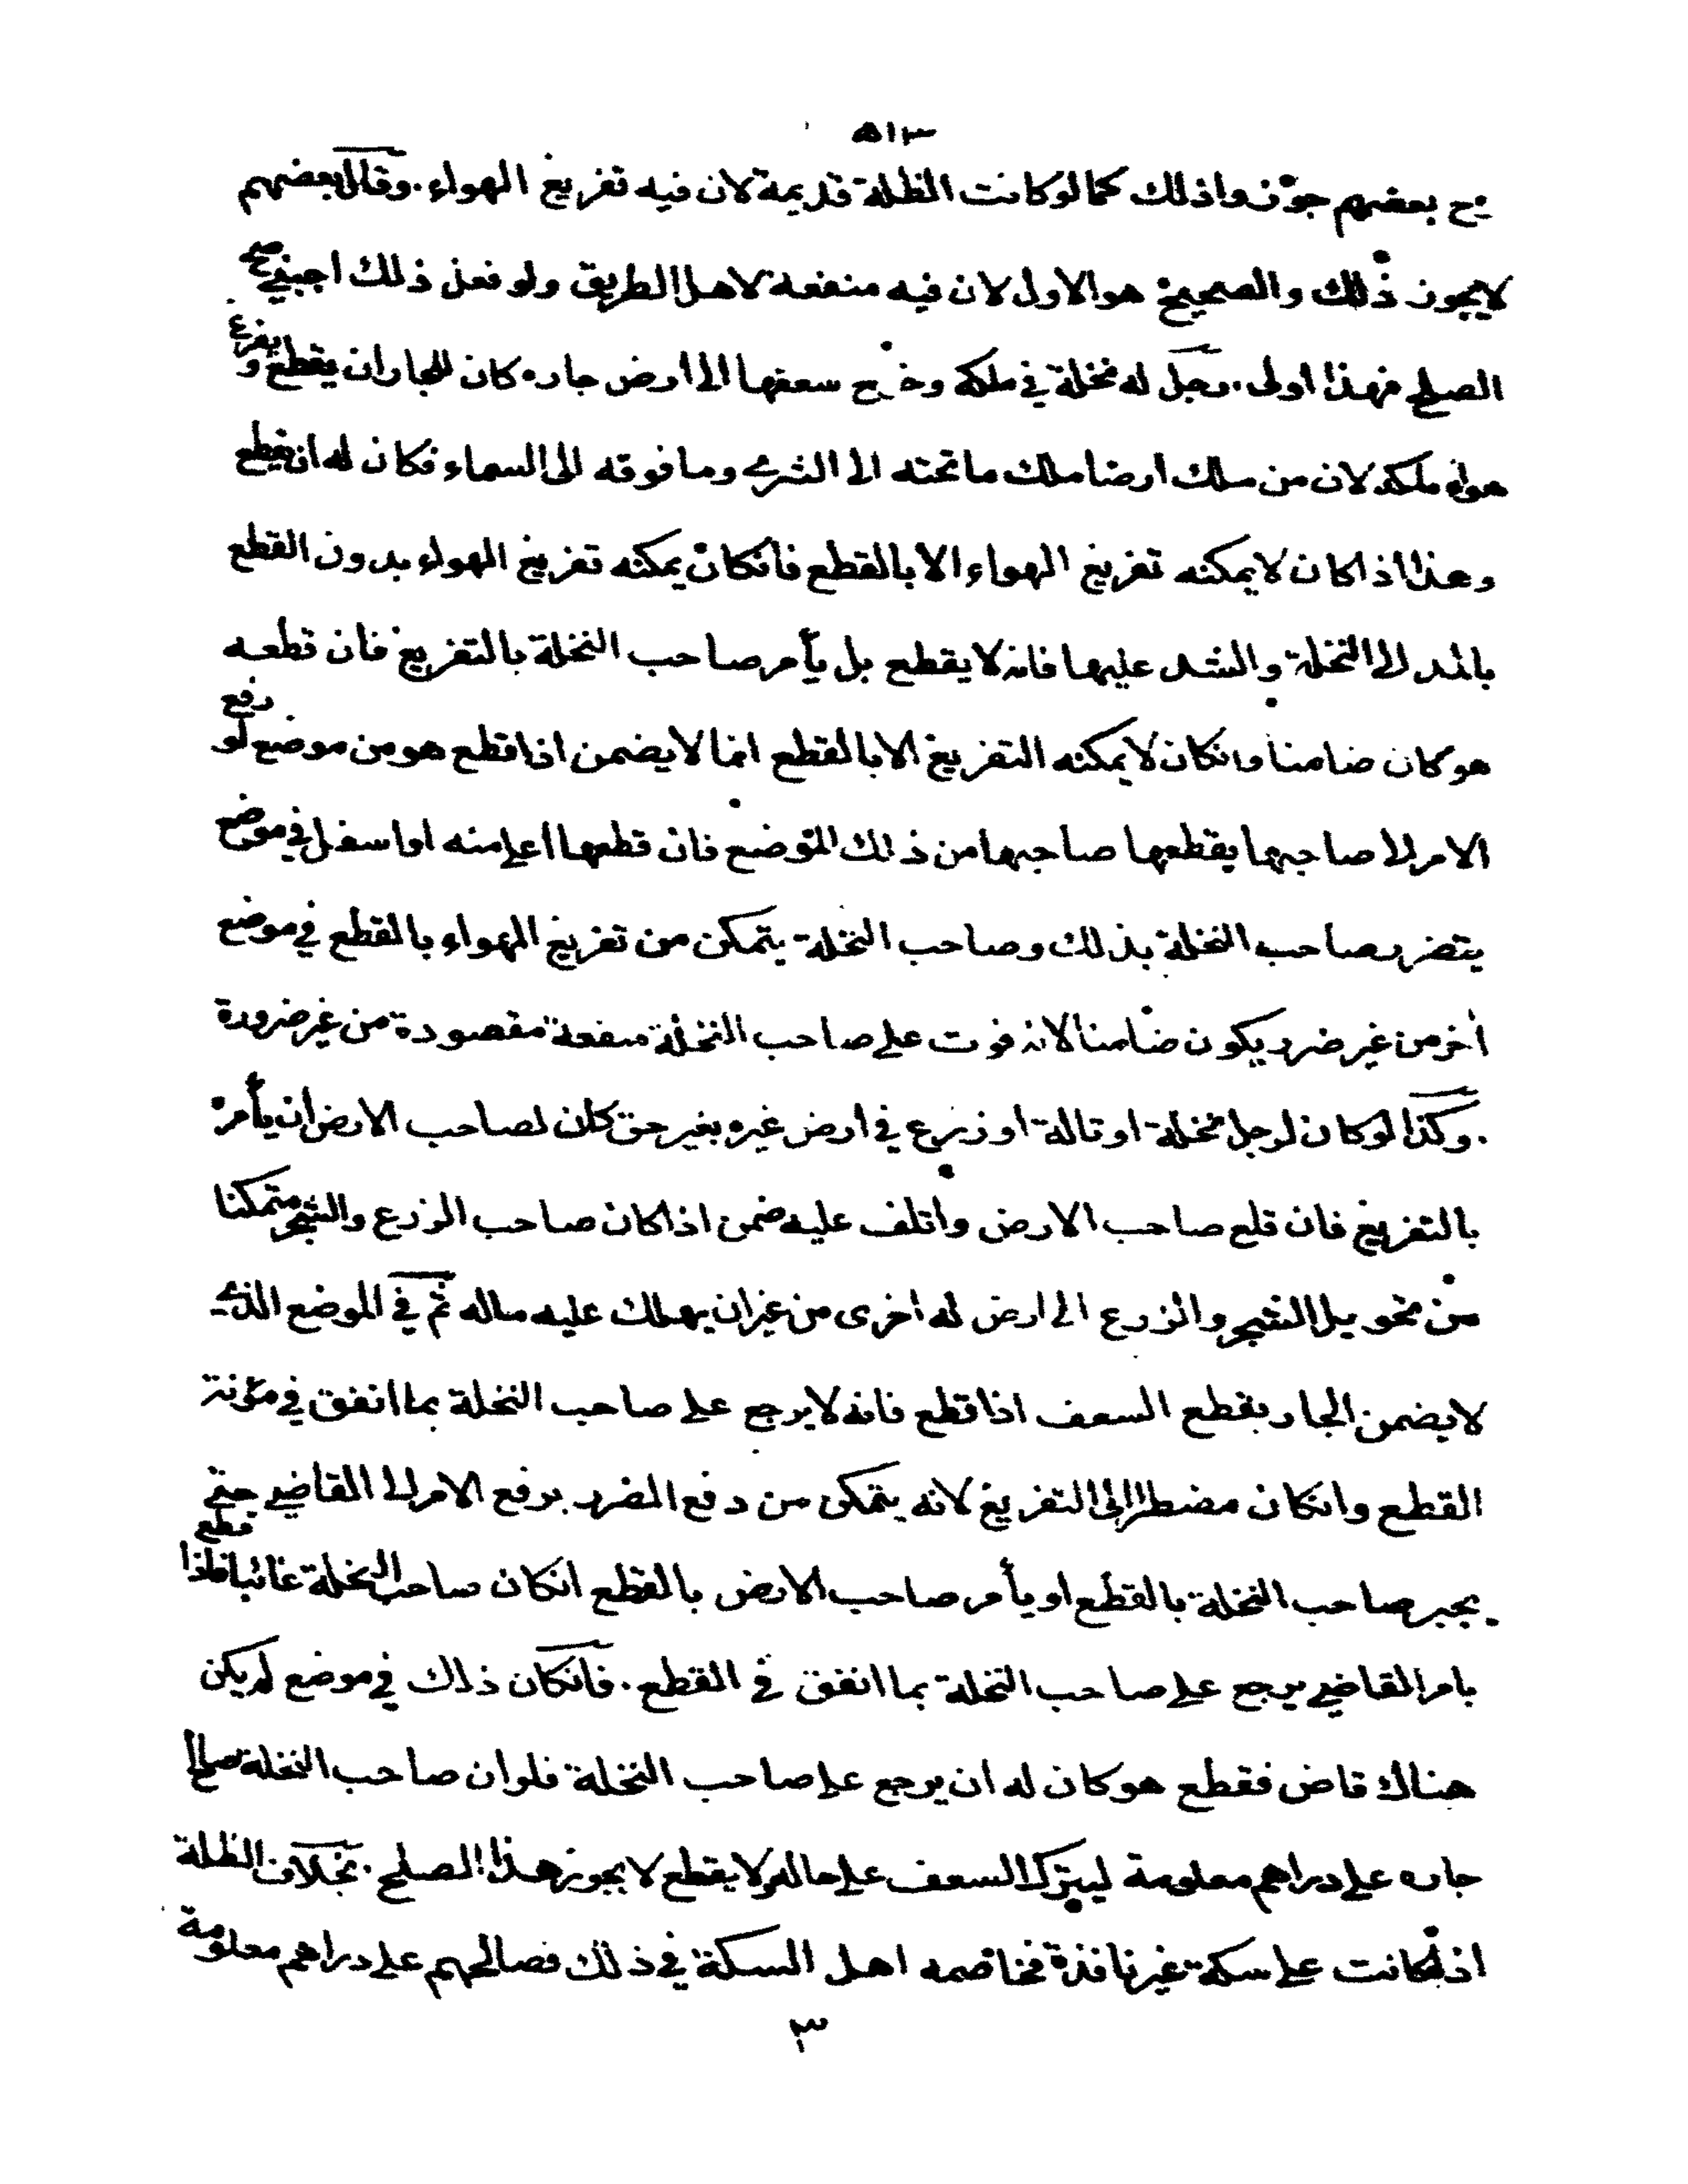 ٥١٣
بعضهم جوزوا ذلك كما لو كانت الظلة قديمة لان فيه تفريغ الهواء . وقال بعضهم
لا يجوز ذلك والصحيح هو الاول لان فيه منفعة لاهل الطريق ولو فعل ذلك اجنبي صح
الصلح فهذا اولى . رجل له نخلة في ملكه وخرج سعفها الى ارض جاره كان للجار ان يقطع ويفرغ
هواء ملكه لان من ملك ارضا ملك ما تحته الى الثرى وما فوقه الى السماء فكان له ان يقطع
وهذا اذا كان لا يمكنه تفريغ الهواء الا بالقطع فانكان يمكنه تفريغ الهواء بدون القطع
بالمد الى النخلة والشد عليها فانه لا يقطع بل يأمر صاحب النخلة بالتفريغ فان قطعه
هو كان ضامنا وانكان لا يمكنه التفريغ الا بالقطع انما لا يضمن اذا قطع هو من موضع لو رفع
الامر الى صاحبها يقطعها صاحبها من ذلك الموضع فان قطعها اعلى منه او اسفل في موضع
يتضرر صاحب النخلة بذلك وصاحب النخلة يتمكن من تفريغ الهواء بالقطع في موضع
أخر من غير ضرر يكون ضامنا لانه فوت على صاحب النخلة منفعة مقصودة من غير ضرورة
. وكذا لو كان لرجل نخلة او تالة او زرع في ارض غيره بغير حق كان لصاحب الارض ان يأمره
بالتفريغ فان قلع صاحب الارض واتلف عليه ضمن اذا كان صاحب الزرع والشجر متمكنا
من تحويل الشجر والزرع الى ارض له اخرى من غير ان يهلك عليه ماله ثم في الموضع الذي
لا يضمن الجار بقطع السعف اذا قطع فانه لا يرجع على صاحب النخلة بما انفق في مؤنة
القطع وانكان مضطرا الى التفريغ لانه يتمكن من دفع الضرر برفع الامر الى القاضي حتى
يجبر صاحب النخلة بالقطع او يأمر صاحب الارض بالقطع انكان صاحب النخلة غائبا فاذا قطع
بامر القاضي يرجع على صاحب النخلة بما انفق في القطع . فانكان ذلك في موضع لم يكن
هناك قاض فقطع هو كان له ان يرجع على صاحب النخلة فلو ان صاحب النخلة صالح
جاره على دراهم معلومة ليترك السعف على حاله ولا يقطع لا يجوز هذا الصلح . بخلاف الظلة
اذا كانت على سكة غير نافذة فخاصمه اهل السكة في ذلك فصالحهم على دراهم معلومة
٣